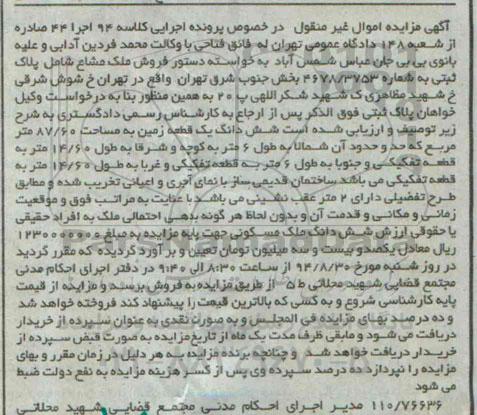 آگهی مزایده اموال غیر منقول در خصوص پرونده اجرایی کلاسه ۹۴ اجرا ۴۴ صادره
از شعبه ۱۴۸ دادگاه عمومی تهران له فائق فتاحی با وکالت محمد فردین آدابی و علیه
بانوی بی بی جان عباس شمس آباد به خواسته دستور فروش ملک مشاع شامل پلاک
ثبتی به شماره ۴۶۷۸/۳۷۵۳ بخش جنوب شرق تهران واقع در تهران خ شوش شرقی
خ شهید مظاهری ک شهید شکراللهی پ ۲۰ به همین منظور بنا به درخواست وکیل
خواهان پلاک ثبتی فوق الذکر پس از ارجاع به کارشناس رسمی دادگستری به شرح
زیر توصیف و ارزیابی شده است شش دانگ یک قطعه زمین به مساحت ۸۷/۶۰ متر
مربع که حد و حدود آن شمالا به طول ۶ متر به کوچه و شرقا به طول ۱۴/۶۰ متر به
قطعه تفکیکی و جنوبا به طول ۶ متر به قطعه تفکیکی و غربا به طول ۱۴/۶۰ متر به
قطعه تفکیکی می باشد ساختمان قدیمی ساز با نمای آجری و اعیانی تخریب شده و مطابق
طرح تفضیلی دارای ۲ متر عقب نشینی می باشد با عنایت به مراتب فوق و موقعیت
زمانی و مکانی و قدمت آن و بدون لحاظ هر گونه بدهی احتمالی ملک به افراد حقیقی
یا حقوقی ارزش شش دانگ ملک مسکونی جهت پایه مزایده به مبلغ ۱۲۳۰۰۰۰۰۰۰
ریال معادل یکصد و بیست و سه میلیون تومان تعیین و بر آورد گردیده که مقرر گردید
در روز شنبه مورخ ۹۴/۸/۳۰ از ساعت ۸:۳۰ الی ۹:۴۰ در دفتر اجرای احکام مدنی
مجتمع قضایی شهید محلاتی ط ۵ از طریق مزایده به فروش برسد و مزایده از قیمت
پایه کارشناسی شروع و به کسی که بالاترین قیمت را پیشنهاد کند فروخته خواهد شد
و ده درصد بهای مزایده فی المجلس و به صورت نقدی به عنوان سپرده از خریدار
دریافت می شود و مابقی ظرف مدت یک ماه از تاریخ مزایده به صورت قبض سپرده از
خریدار دریافت خواهد شد و چنانچه برنده مزایده به هر دلیل در زمان مقرر و بهای
مزایده را نپردازد ده درصد سپرده وی پس از کسر هزینه مزایده به نفع دولت ضبط
می شود
۱۱۰/۷۶۶۳۶ مدیر اجرای احکام مدنی مجتمع قضایی شهید محلاتی